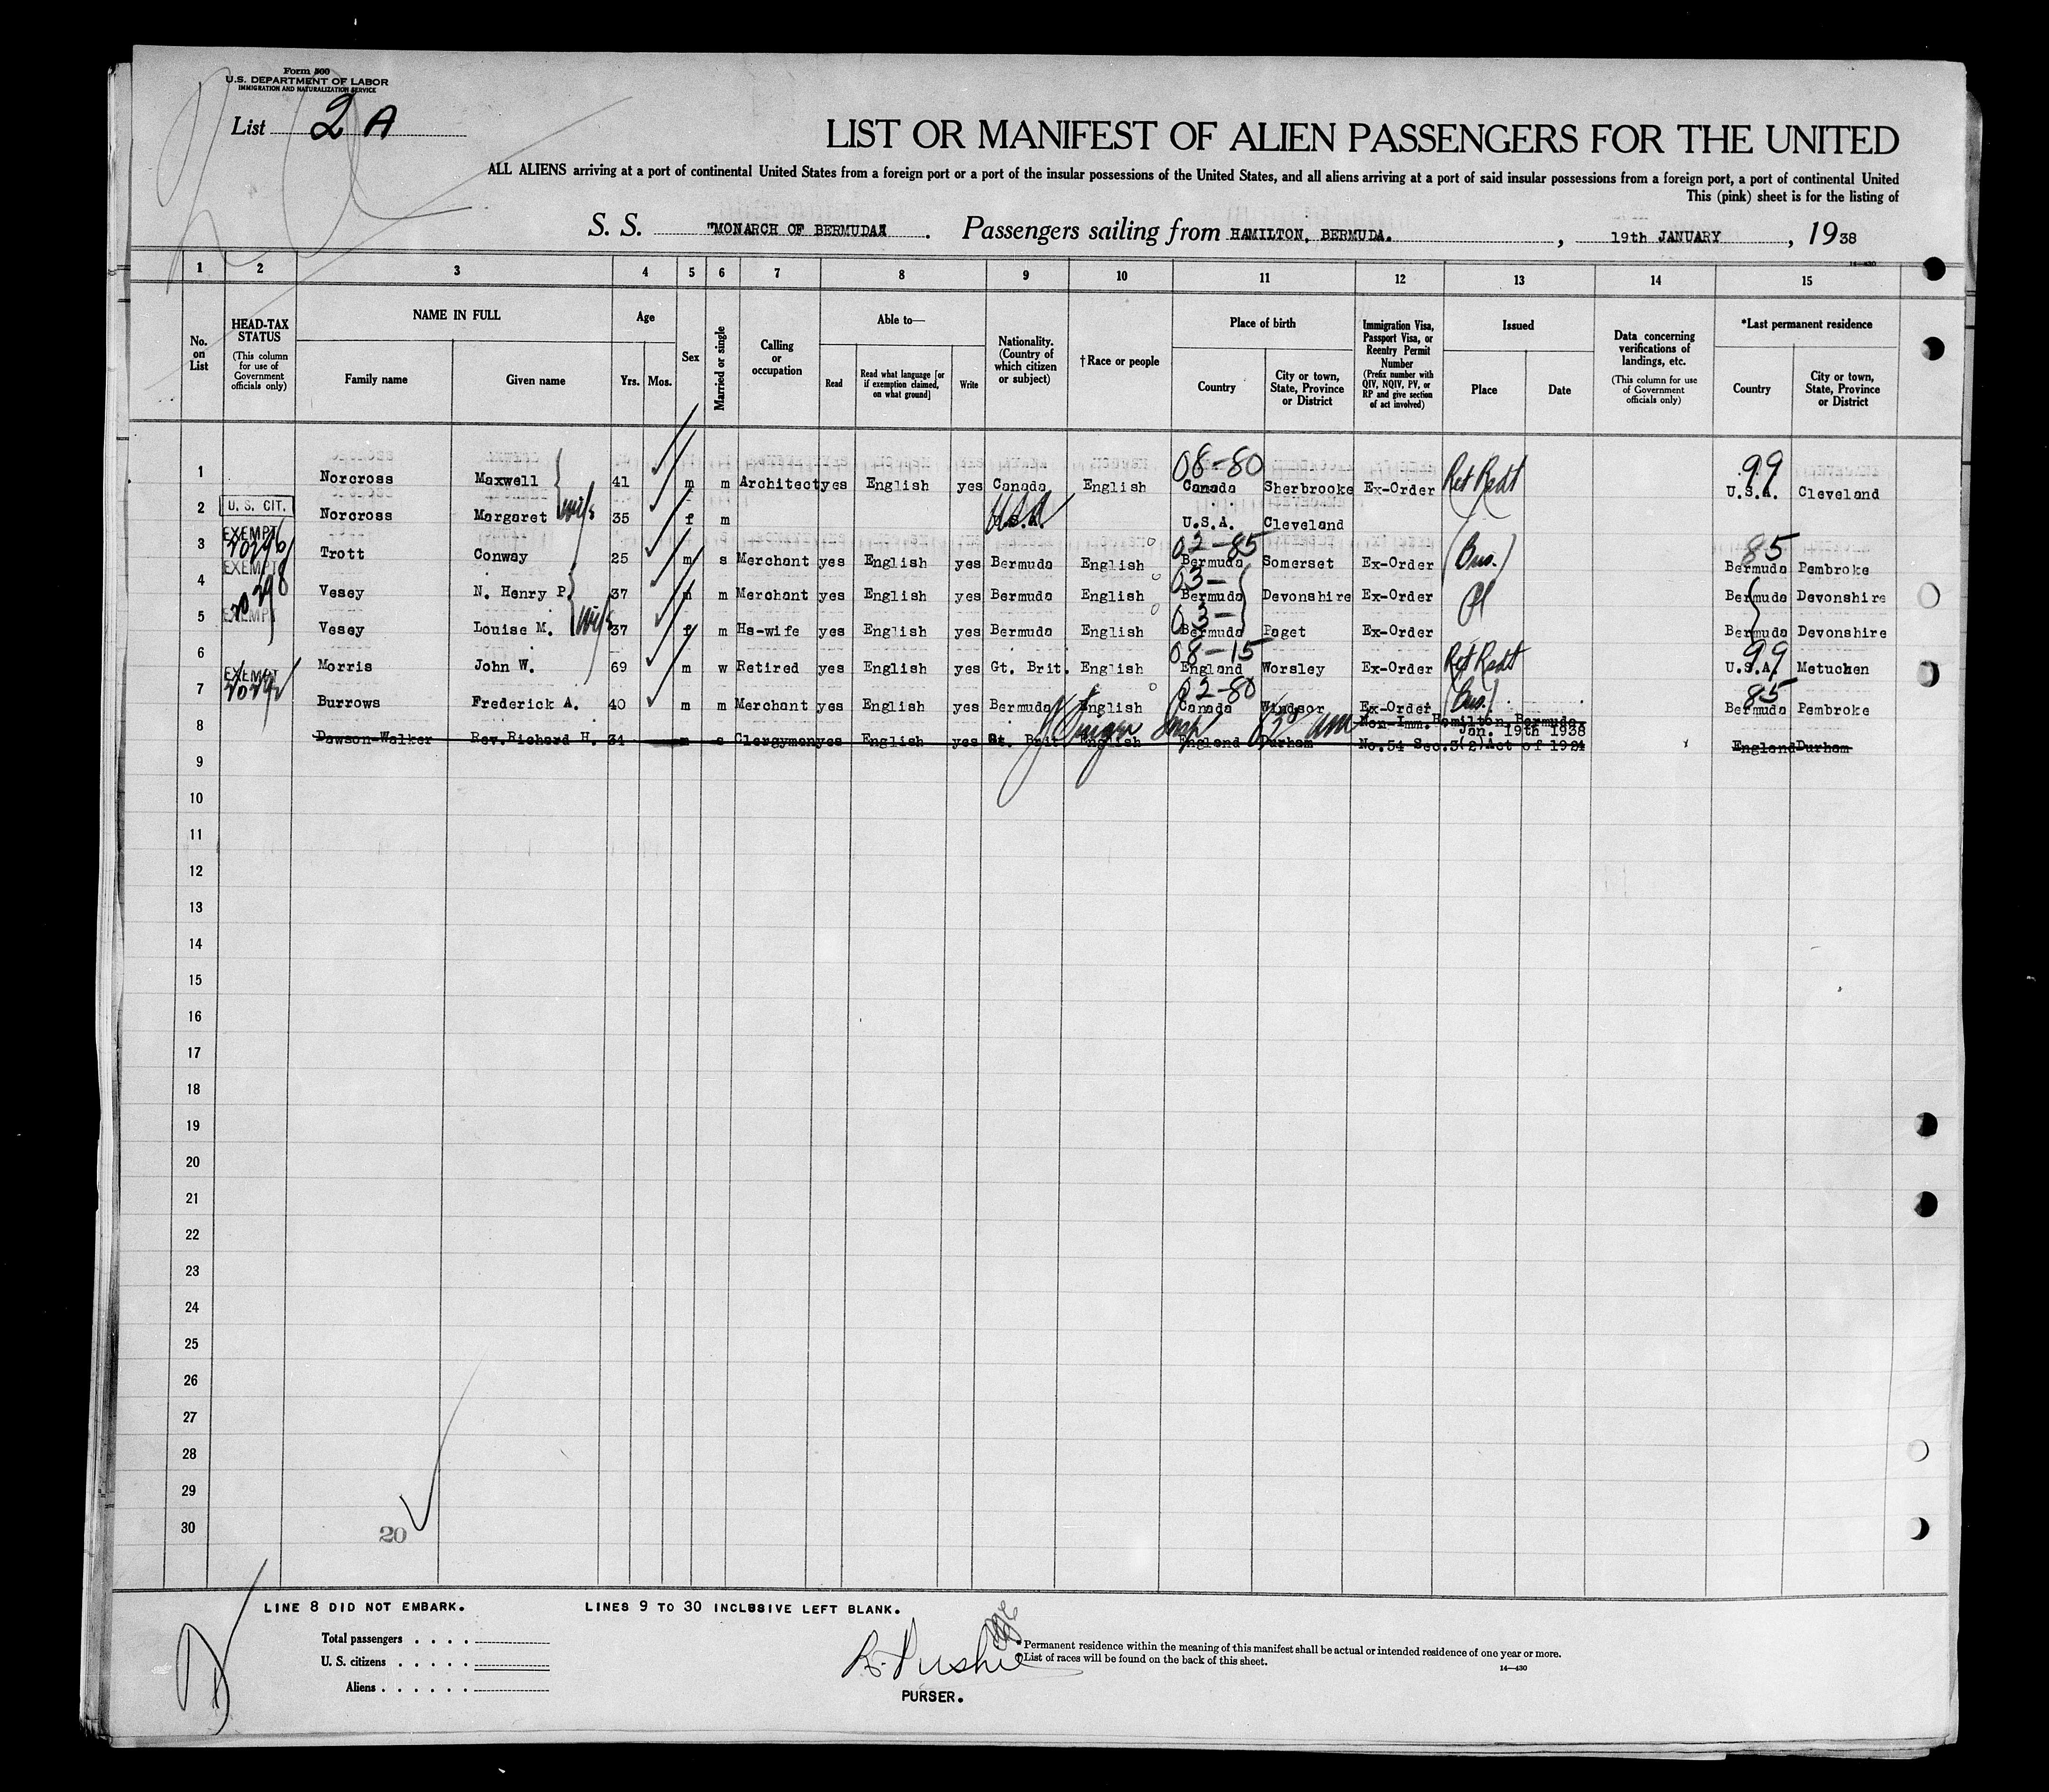 Form 500
U.S. DEPARTMENT OF LABOR
IMMIGRATION AND NATURALIZATION SERVICE
List 2 A
LIST OR MANIFEST OF ALIEN PASSENGERS FOR THE UNITED
ALL ALIENS arriving at a port of continental United States from a foreign port or a port of the insular possessions of the United States, and all aliens arriving at a port of said insular possessions from a foreign port, a port of continental United
This (pink) sheet is for the listing of
S. S. "MONARCH OF BERMUDA" . Passengers sailing from HAMILTON, BERMUDA. , 19th JANUARY , 1938
14—430
1 2 3 4 5 6 7 8 9 10 11 12 13 14 15
No. on List
HEAD-TAX STATUS (This column for use of Government officials only)
NAME IN FULL
Family name Given name
Age
Yrs. Mos.
Sex
Married or single
Calling or occupation
Able to—
Read
Read what language [or if exemption claimed, on what ground]
Write
Nationality. (Country of which citizen or subject)
†Race or people
Place of birth
Country City or town, State, Province or District
Immigration Visa, Passport Visa, or Reentry Permit Number (Prefix number with QIV, NQIV, PV, or RP and give section of act involved)
Issued
Place Date
Data concerning verifications of landings, etc. (This column for use of Government officials only)
*Last permanent residence
Country City or town, State, Province or District
08-80 99
1 Norcross Maxwell 41 m m Architect yes English yes Canada English Canada Sherbrooke Ex-Order U.S.A. Cleveland
2 U. S. CIT. Norcross Margaret wife 35 f m U.S.A. U.S.A. Cleveland
EXEMPT 02-85 85
3 Trott Conway 25 m s Merchant yes English yes Bermuda English Bermuda Somerset Ex-Order (Bus.) Bermuda Pembroke
EXEMPT 03-
4 Vesey N. Henry P. 37 m m Merchant yes English yes Bermuda English Bermuda Devonshire Ex-Order Pl Bermuda Devonshire
EXEMPT 03-
5 Vesey Louise M. wife 37 f m Hs-wife yes English yes Bermuda English Bermuda Paget Ex-Order Bermuda Devonshire
08-15 99
6 Morris John W. 69 m w Retired yes English yes Gt. Brit. English England Worsley Ex-Order U.S.A. Metuchen
EXEMPT 02-80 85
7 Burrows Frederick A. 40 m m Merchant yes English yes Bermuda English Canada Windsor Ex-Order (Bus.) Bermuda Pembroke
Non-Imm. Hamilton, Bermuda,
Jan. 19th 1938
8 Dawson-Walker Rev. Richard H. 34 m s Clergyman yes English yes Gt. Brit English England Durham No.54 Sec.3(2)Act of 1924 England Durham
9
10
11
12
13
14
15
16
17
18
19
20
21
22
23
24
25
26
27
28
29
30
20
LINE 8 DID NOT EMBARK. LINES 9 TO 30 INCLUSIVE LEFT BLANK.
Total passengers . . . .
U. S. citizens . . . . .
Aliens . . . . . .
PURSER.
*Permanent residence within the meaning of this manifest shall be actual or intended residence of one year or more.
†List of races will be found on the back of this sheet.
14—430